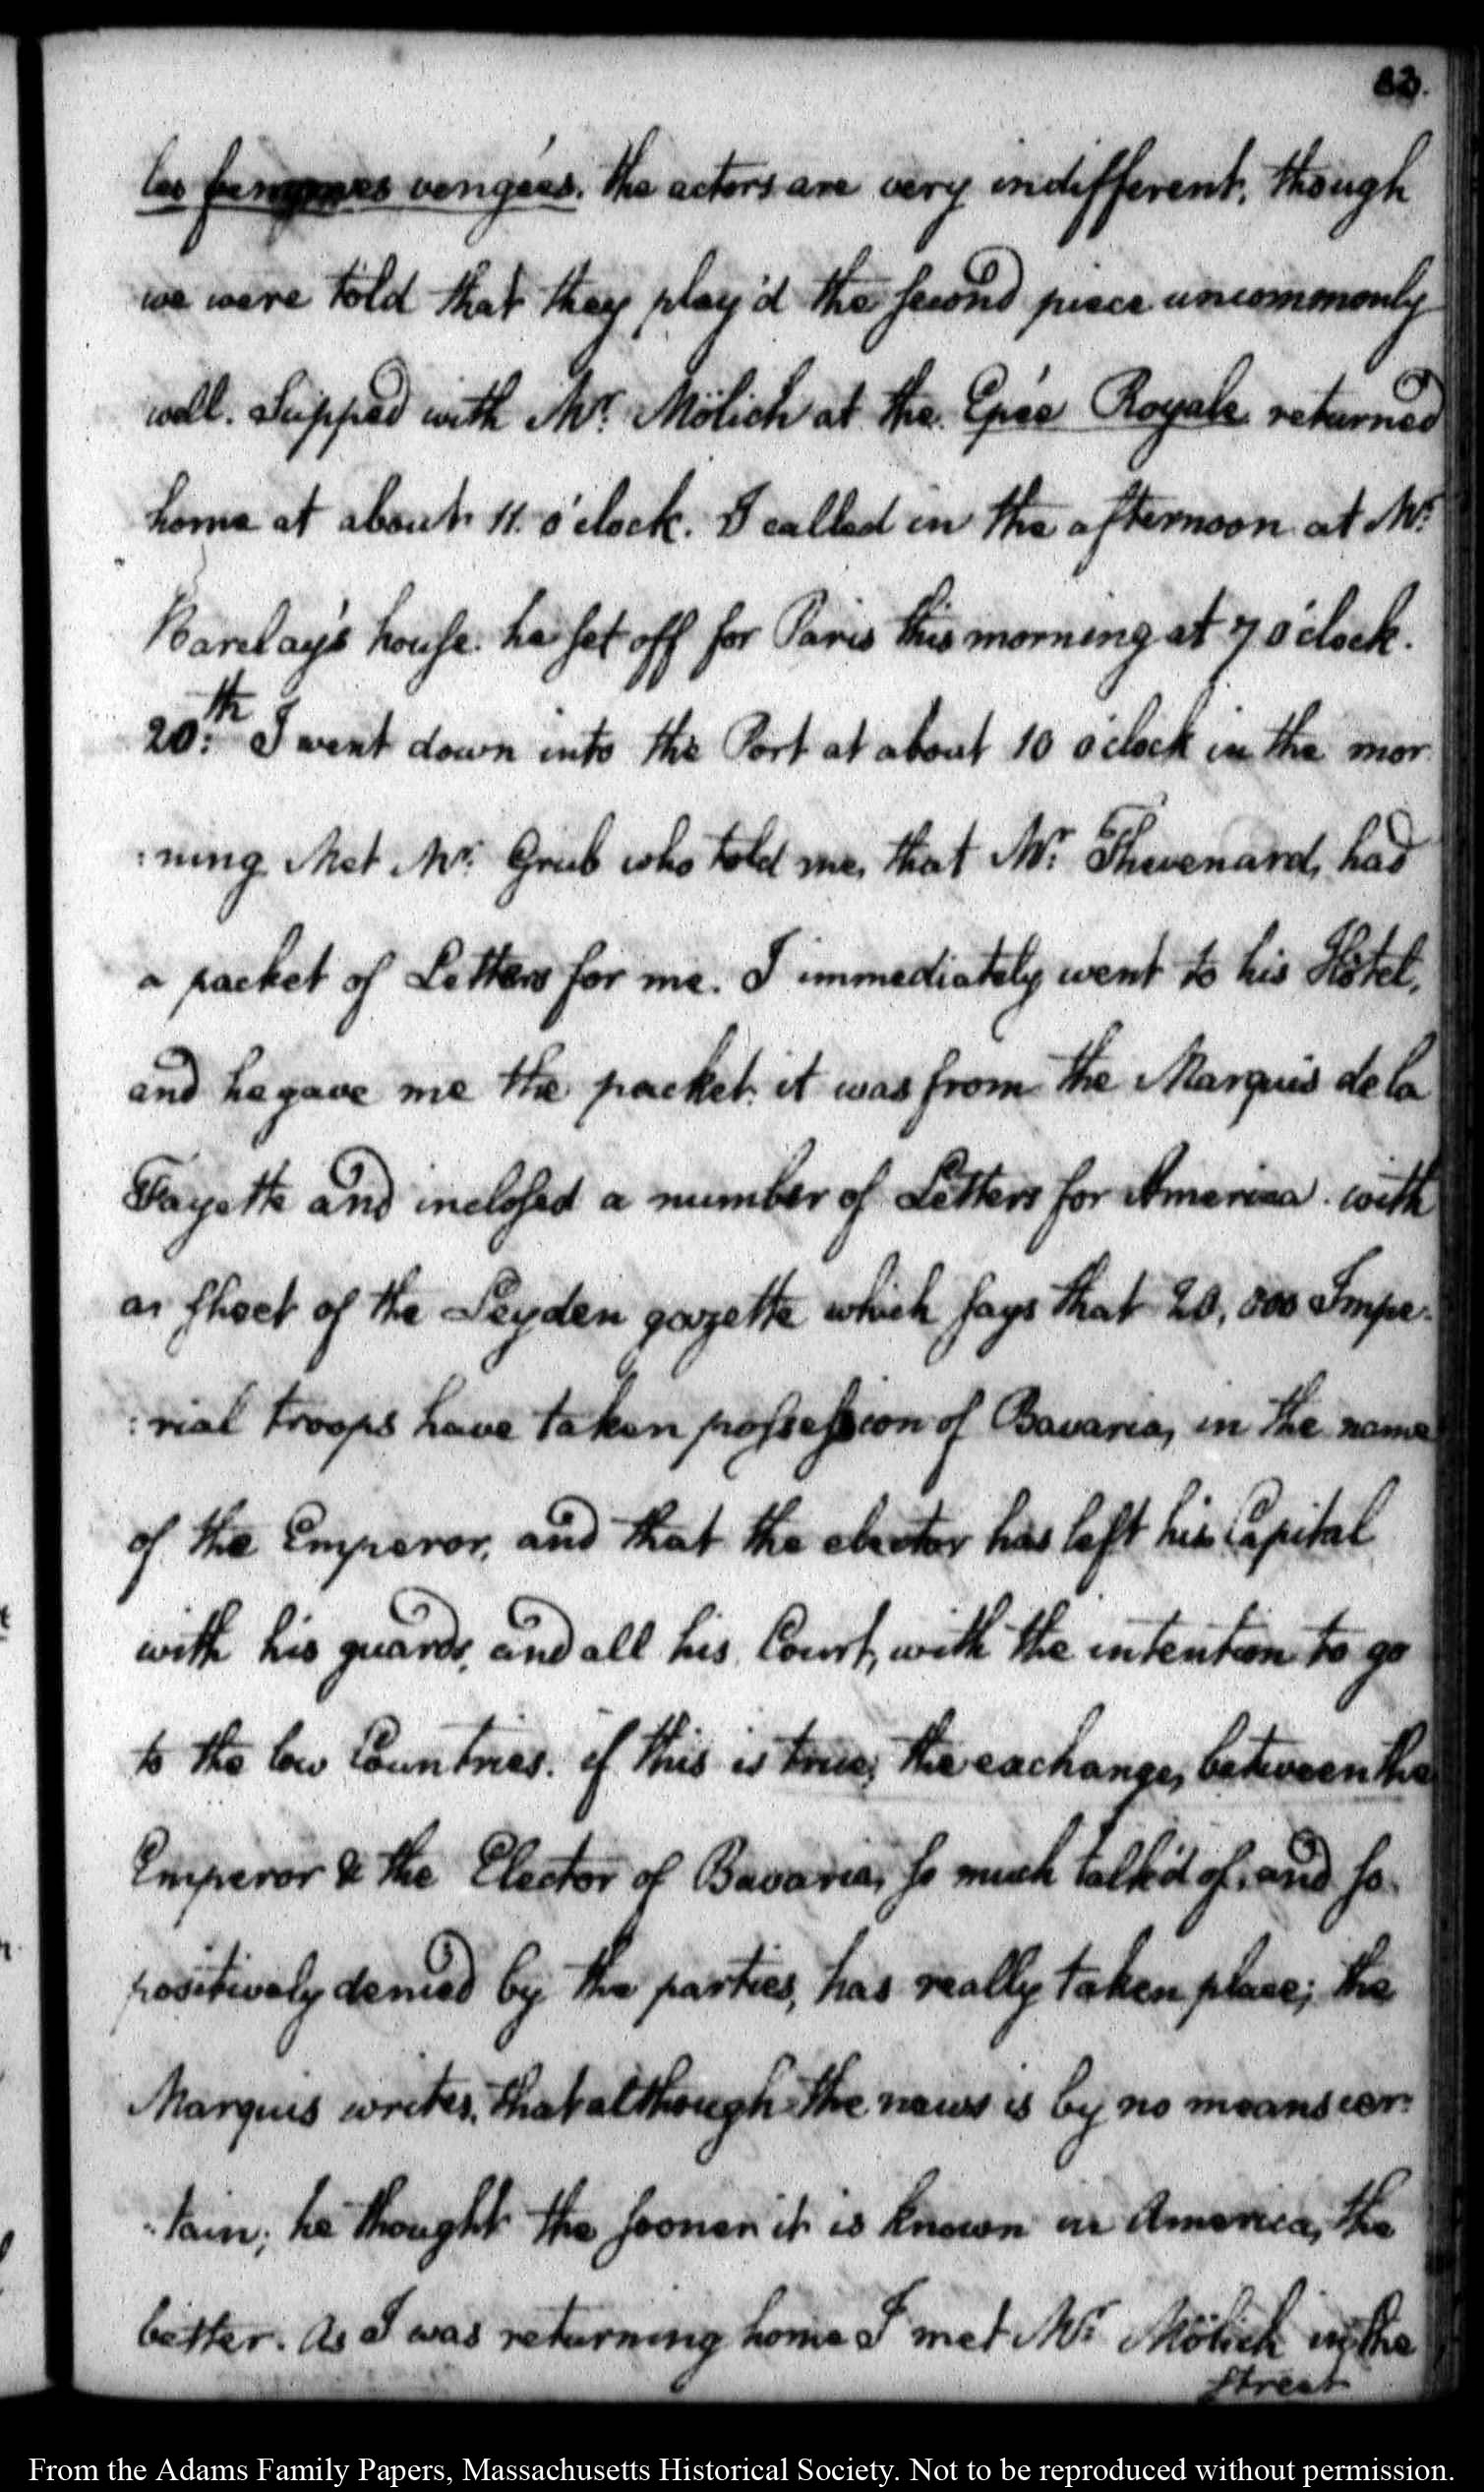 83.
les femmes vengées. the actors are very indifferent, though
we were told that they play'd the second piece uncommonly
well. Supped with Mr. Mölich at the Epée Royale returned
home at about 11. o'clock. I called in the afternoon at Mr.
Barclay's house. he set off for Paris this morning at 7 o'clock.
20.th I went down into the Port at about 10 o'clock in the mor
:ning Met Mr. Grub who told me, that Mr. Thevenard, had
a packet of Letters for me. I immediately went to his Hôtel,
and he gave me the packet. it was from the Marquis de la
Fayette and inclosed a number of Letters for America. with
a sheet of the Leyden gazette which says that 20,000 Impe:
:rial troops have taken possession of Bavaria, in the name
of the Emperor, and that the elector has left his Capital
with his guards, and all his Court, with the intention to go
to the low Countries. if this is true, the exchange, between the
Emperor & the Elector of Bavaria, so much talk'd of, and so
positively denied by the parties, has really taken place; the
Marquis writes, that although the news is by no means cer:
:tain; he thought the sooner it is known in America, the
better. As I was returning home I met Mr. Mölich in the
street
From the Adams Family Papers, Massachusetts Historical Society. Not to be reproduced without permission.